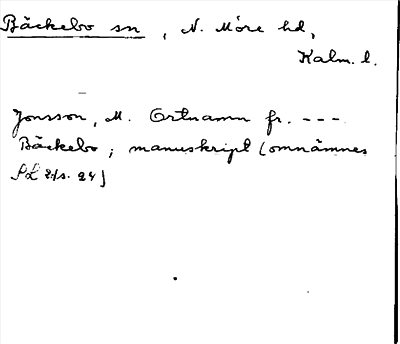 Bäckebo sn, N. Möre hd,
Kalm. l.
Jonsson, M. Ortnamn fr. ---
Bäckebo; manuskript (omnämnes
s. 24)